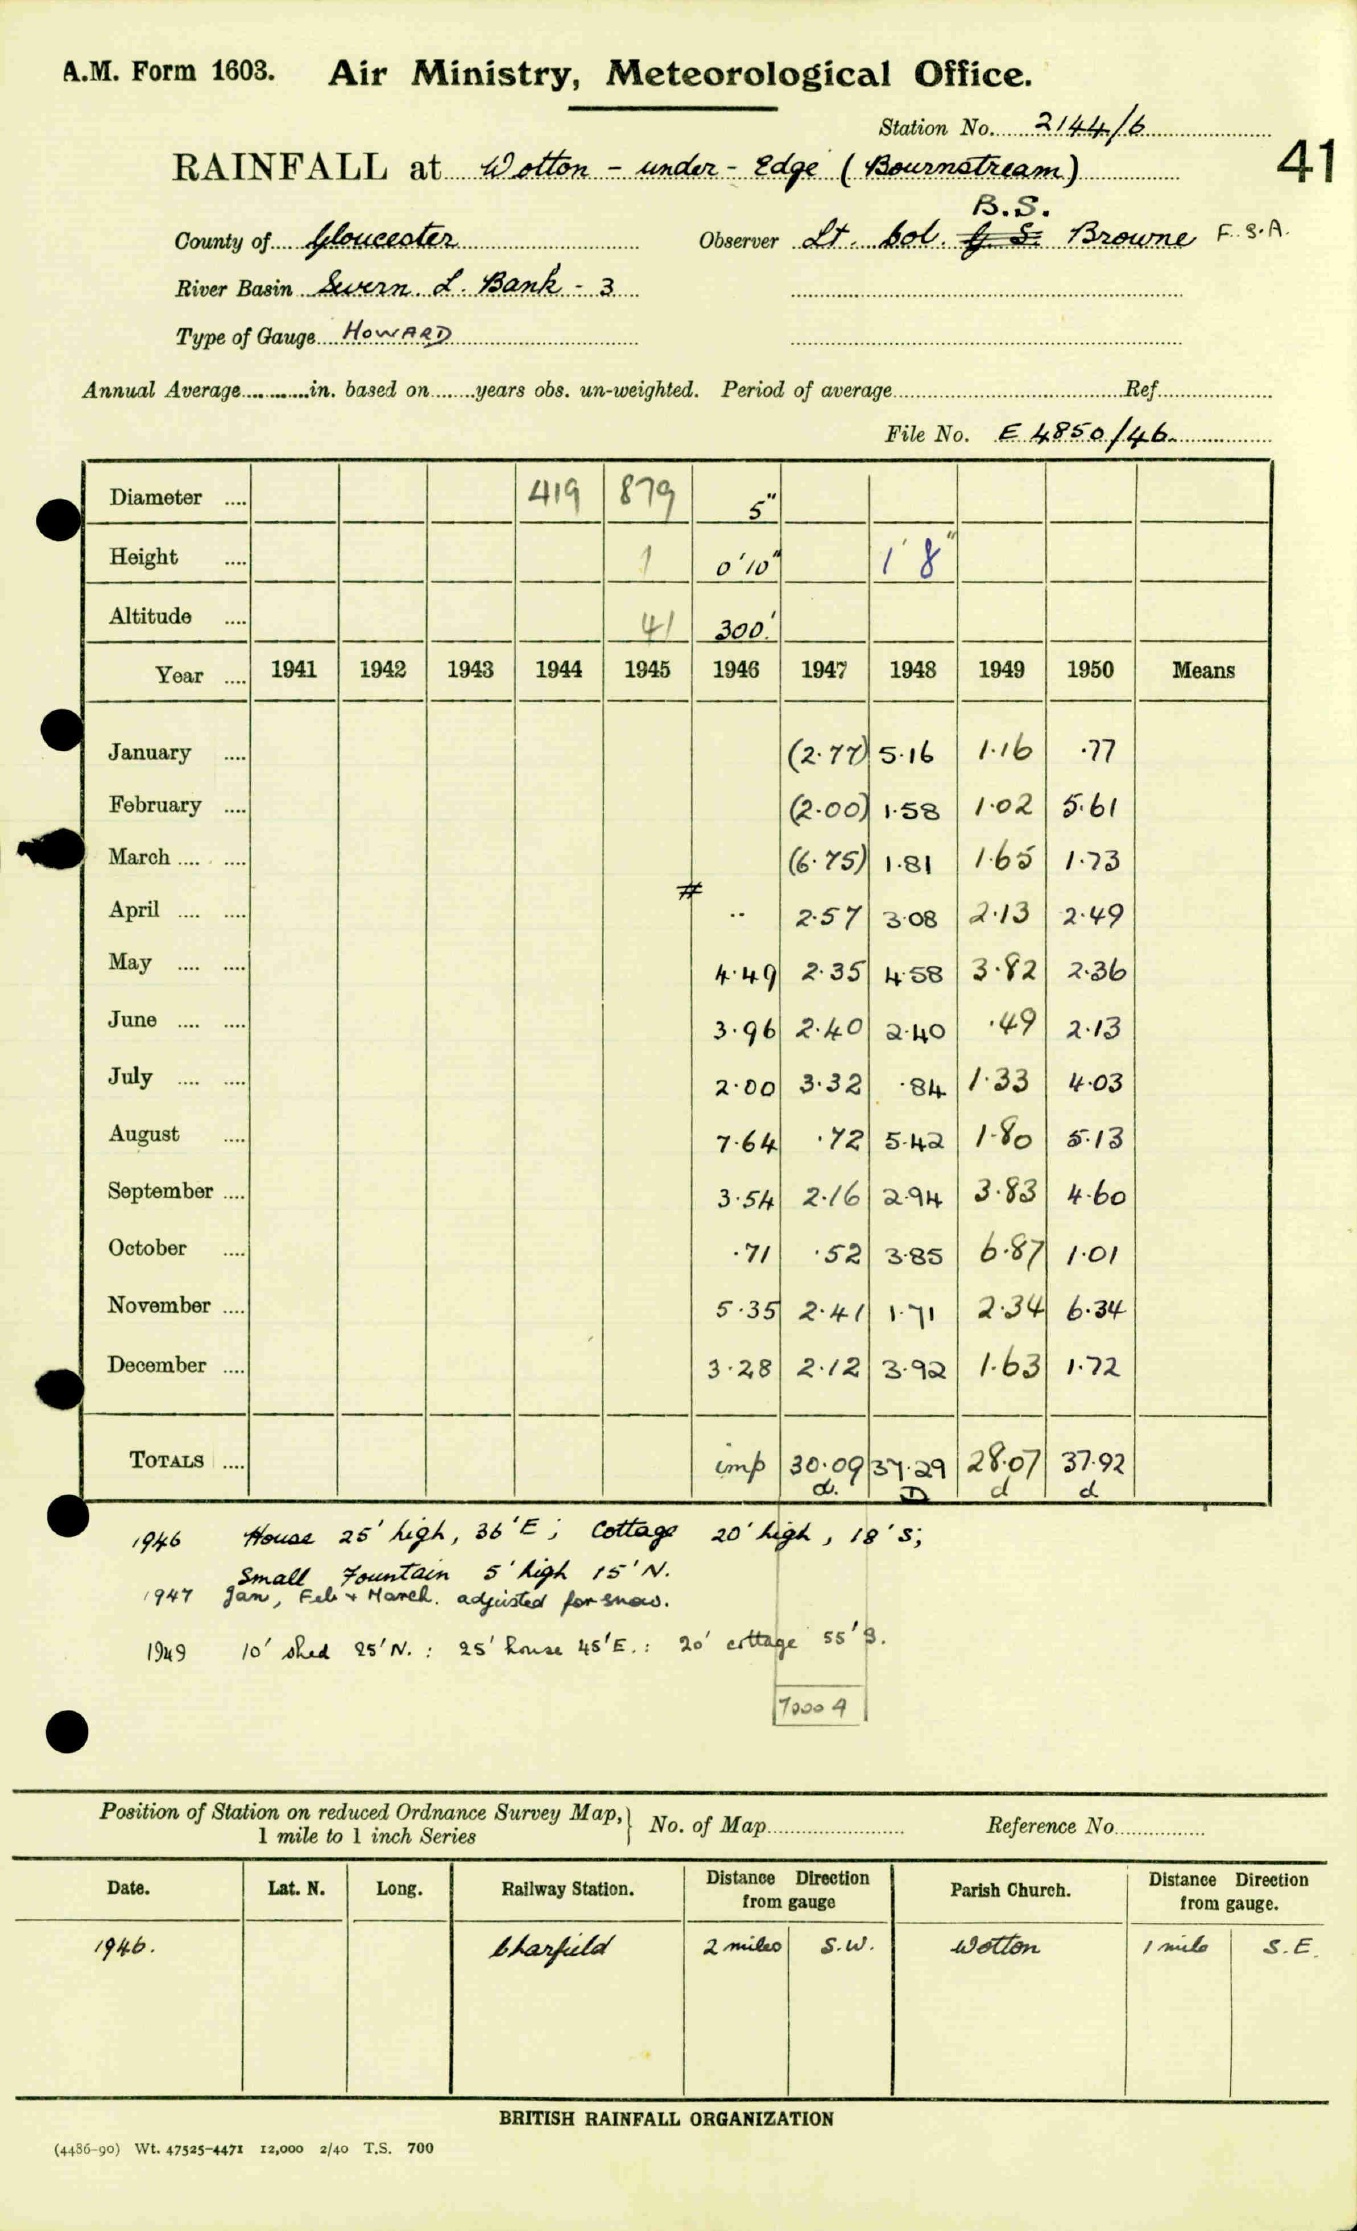 A.M. Form 1603. Air Ministry, Meteorological Office.
Station No. 2144/6
41
RAINFALL at Wotton - under - Edge (Bournstream)
B.S.
County of Gloucester Observer Lt. Col. G. S. Browne F.S.A.
River Basin Severn. L. Bank - 3
Type of Gauge HOWARD
Annual Average in. based on years obs. un-weighted. Period of average Ref.
File No. E 4850/46
Diameter 419 879 5"
Height 1 0'10" 1'8"
Altitude 41 300'
Year 1941 1942 1943 1944 1945 1946 1947 1948 1949 1950 Means
January (2.77) 5.16 1.16 .77
February (2.00) 1.58 1.02 5.61
March (6.75) 1.81 1.65 1.73
April # .. 2.57 3.08 2.13 2.49
May 4.49 2.35 4.58 3.82 2.36
June 3.96 2.40 2.40 .49 2.13
July 2.00 3.32 .84 1.33 4.03
August 7.64 .72 5.42 1.80 5.13
September 3.54 2.16 2.94 3.83 4.60
October .71 .52 3.85 6.87 1.01
November 5.35 2.41 1.71 2.34 6.34
December 3.28 2.12 3.92 1.63 1.72
TOTALS imp 30.09 37.29 28.07 37.92
d. D d d
1946 House 25' high, 36'E; Cottage 20' high, 18'S;
Small Fountain 5' high 15'N.
1947 Jan, Feb + March. adjusted for snow.
1949 10' shed 25'N. : 25' house 45'E. : 20' cottage 55'S.
7000 9
Position of Station on reduced Ordnance Survey Map, } No. of Map Reference No.
1 mile to 1 inch Series
Date. Lat. N. Long. Railway Station. Distance Direction from gauge Parish Church. Distance Direction from gauge.
1946. Charfield 2 miles S.W. Wotton 1 mile S.E.
BRITISH RAINFALL ORGANIZATION
(4486-90) Wt. 47525-4471 12,000 2/40 T.S. 700